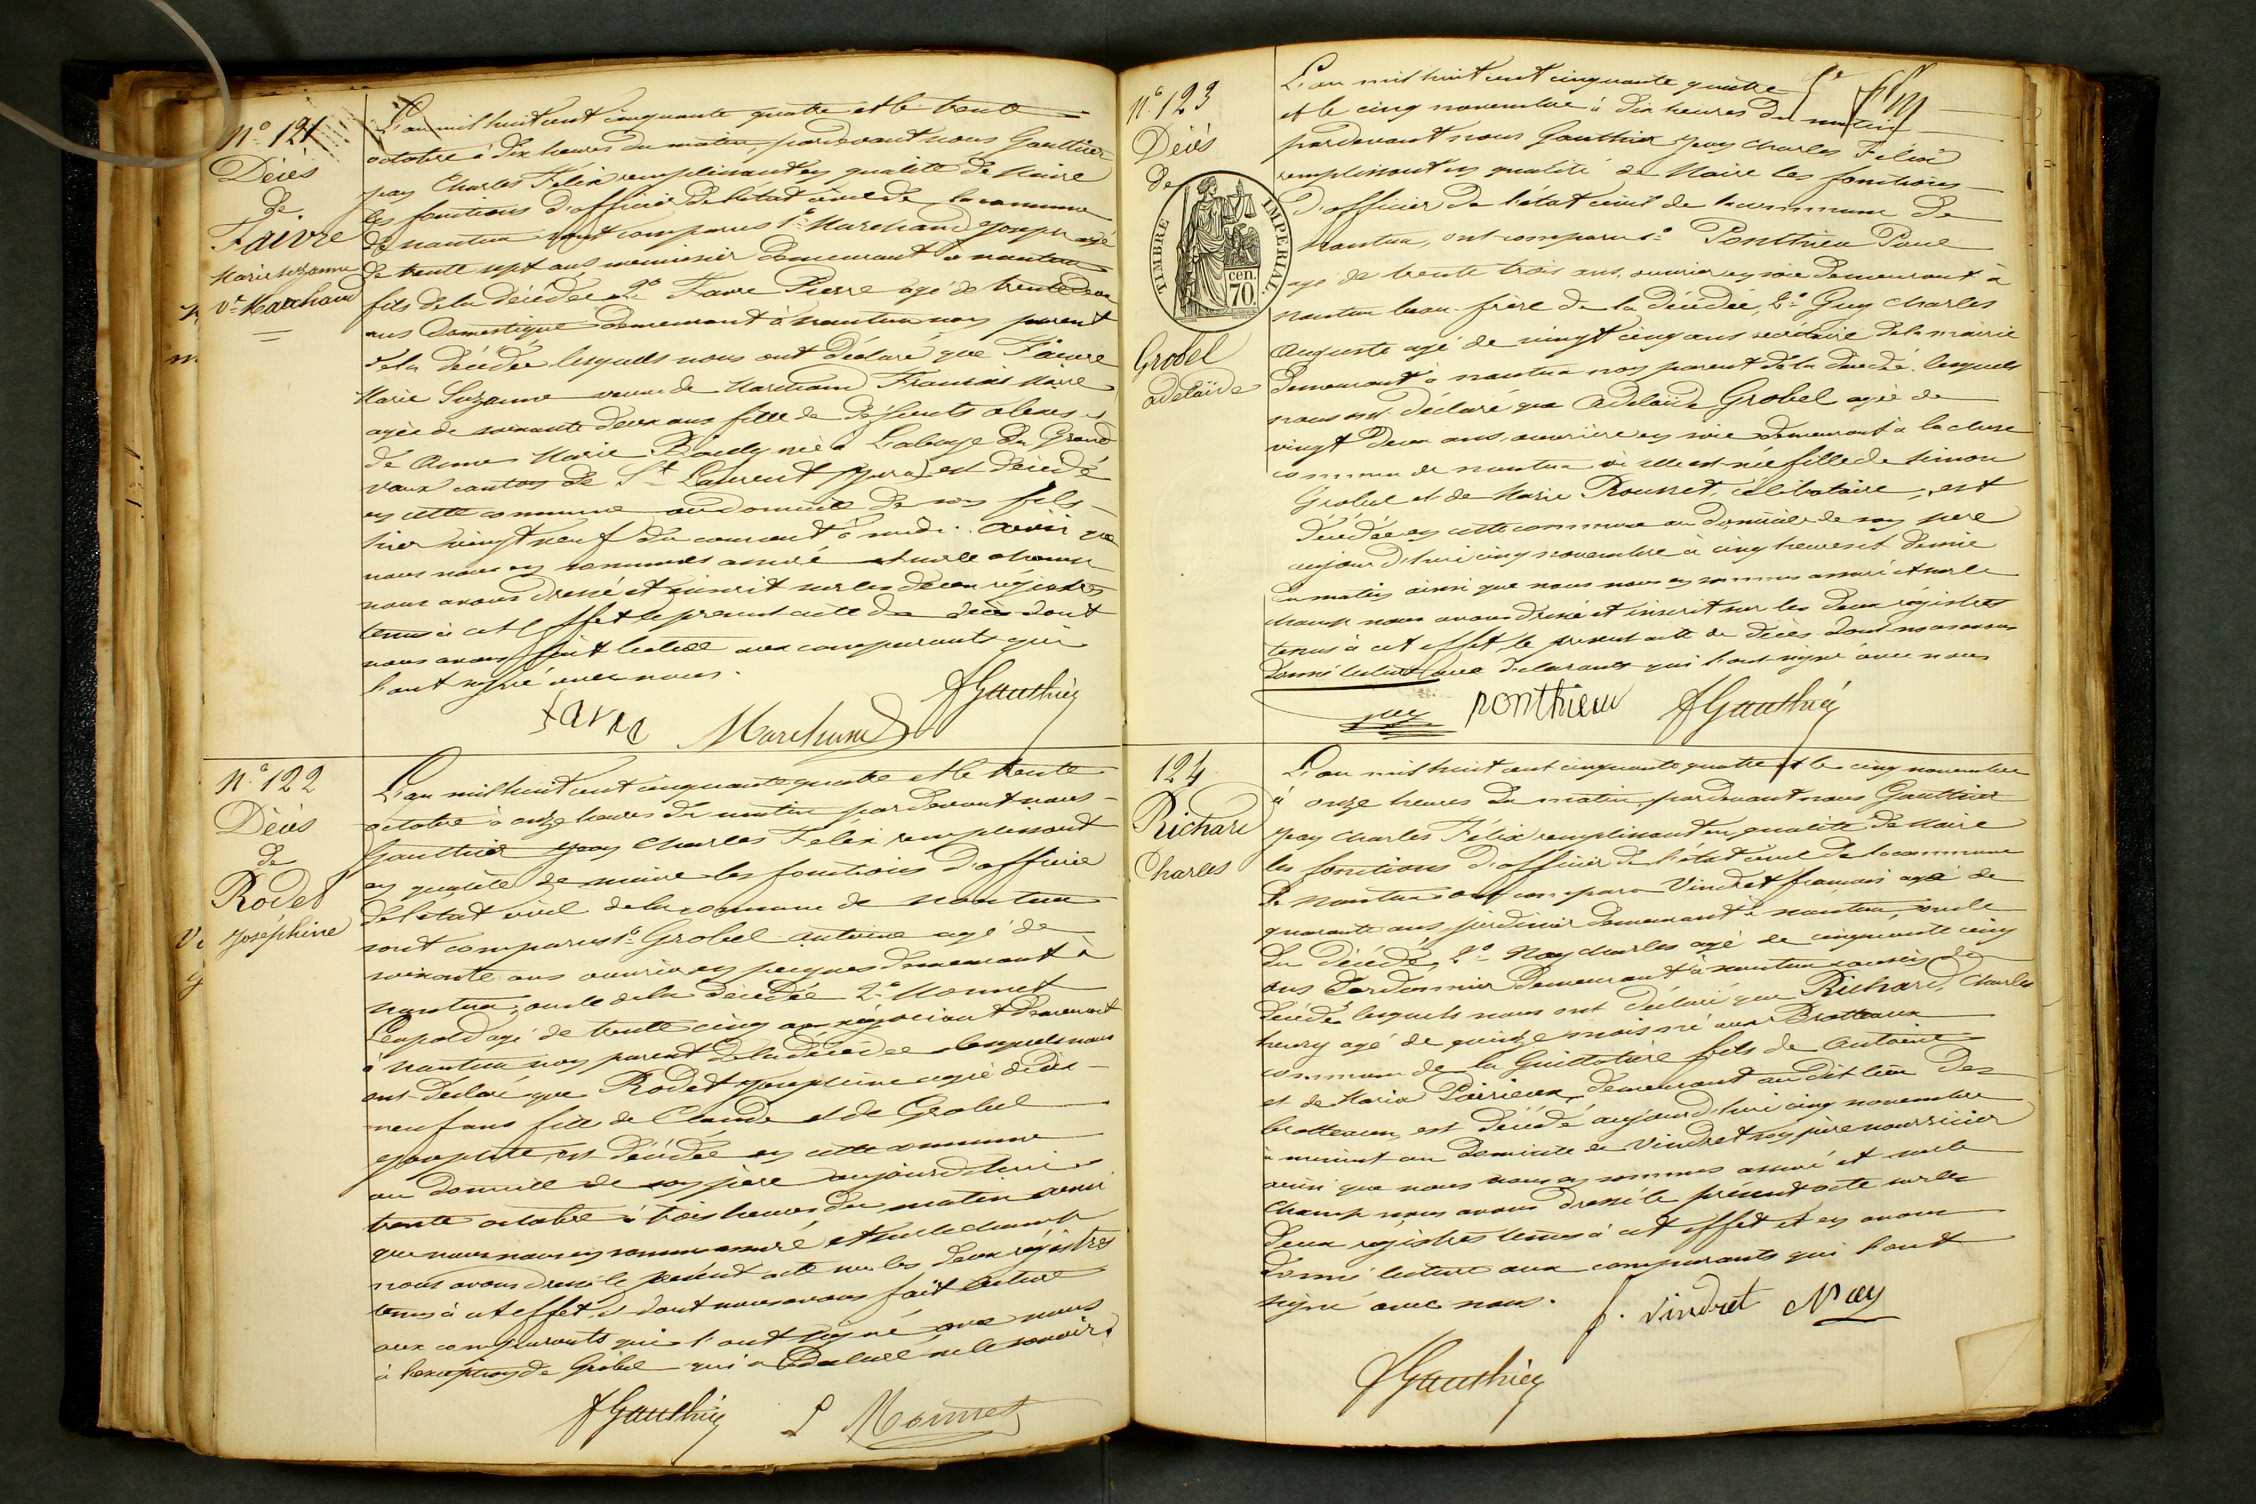 N.º 121
Décès
de
Faivre
Marie Suzanne
Vᵉ Marchand
L'an mil huit cent cinquante quatre et le trente
octobre à dix heures du matin pardevant nous Gauthier
jean Charles Félix remplissant en qualité de Maire
les fonctions d'officier de l'état civil de la commune
de nantua sont comparus 1º Marchand Joseph agé
de trente sept ans menuisier demeurant à nantua
fils de la décédée 2º Favre Pierre agé de trente deux
ans domestique demeurant à nantua non parent
de la décédée lesquels nous ont déclaré que Faivre
Marie Suzanne veuve de Marchand François Marie
agée de soixante deux ans fille de défunts alexis et
de Anne Marie Bailly née à L'abaye du Grand
vaux canton de Sᵗ Laurent (Jura) est décédé
en cette commune au domicile de son fils
hier vingt neuf du courant à midi. ainsi que
nous nous en sommes assuré et sur le champ
nous avons dressé et inscrit sur les deux régistres
tenus à cet effet le présent acte de décès dont
nous avons fait lecture aux comparants qui
l'ont signé avec nous.
favre Marchand fGauthier
N.º 122
Décès
de
Rodet
Joséphine
L'an mil huit cent cinquante quatre et le trente
octobre à onze heures du matin pardevant nous
Gauthier jean Charles Felix remplissant
en qualité de maire les fonctions d'officier
de l'état civil de la commune de nantua
sont comparus 1º Grobel antoine agé de
soixante ans ouvrier en peignes demeurant à
nantua, oncle de la décédée 2º Monnet
Léopold agé de trente cinq ans négociant demeurant
à nantua non parent de la décédée lesquels nous
ont déclaré que Rodet Joséphine agée de dix
neuf ans fille de Claude et de Grobel
josephte, est décédée en cette commune
au domicile de son père aujourd'hui
trente octobre à trois heures du matin ainsi
que nous nous en sommes assuré et sur le champ
nous avons dressé le présent acte sur les deux régistres
tenus à cet effet, et dont nous avons fait lecture
aux comparants qui l'ont signé avec nous
à l'exception de Grobel qui a déclaré ne le savoir.
fGauthier L Monnet
N.º 123
Décés
de
TIMBRE IMPERIAL.
cen.
70.
Grobel
adelaïde
L'an mil huit cent cinquante quatre
et le cinq novembre à dix heures du matin
pardevant nous Gauthier jean charles Félix
remplissant en qualité de Maire les fonctions
d'officier de l'état civil de la commune de
nantua, ont comparu 1º Ponthieu Paul
agé de trente trois ans, ouvrier en soie demeurant à
nantua beau-frère de la décédée, 2º Guy charles
auguste agé de vingt cinq ans secrétaire de la mairie
demeurant à nantua non parent de la décédé. lesquels
nous ont déclaré que adelaïde Grobel agée de
vingt deux ans, ouvrière en soie demeurant à la cluse
commune de nantua où elle est née fille de Simon
Grobel et de Marie Rousset, célibataire, est
décédée en cette commune au domicile de son père
aujourd'hui cinq novembre à cinq heures et demie
du matin ainsi que nous nous en sommes assuré et sur le
champ nous avons dressé et inscrit sur les deux régistres
tenus à cet effet, le présent acte de décès dont nous avons
donné lecture aux déclarants qui l'ont signé avec nous
guy ponthieu fGauthier
124
Richard
Charles
L'an mil huit cent cinquante quatre et le cinq novembre
à onze heures du matin, pardevant nous Gauthier
jean charles Félix remplissant en qualité de Maire
les fonctions d'officier de l'état civil de la commune
de nantua ont comparu Vindret françois agé de
quarante ans, jardinier demeurant à nantua, oncle
du décédé, 2º Nay charles agé de cinquante cinq
ans Cordonnier demeurant à nantua cousin du
décédé lesquels nous ont déclaré que Richard, Charles
henry agé de quinze mois né aux Brotteaux
commune de la Guillotière fils de Antoine
et de Maria Poirieux, demeurant au dit lieu des
brotteaux, est décédé aujourd'hui cinq novembre
à minuit au domicile de Vindret son père nourricier
ainsi que nous nous en sommes assuré et sur le
champ nous avons dressé le présent acte sur les
deux régistres tenus à cet effet et en avons
donné lecture aux comparants qui l'ont
signé avec nous.
f. Vindret Nay
fGauthier